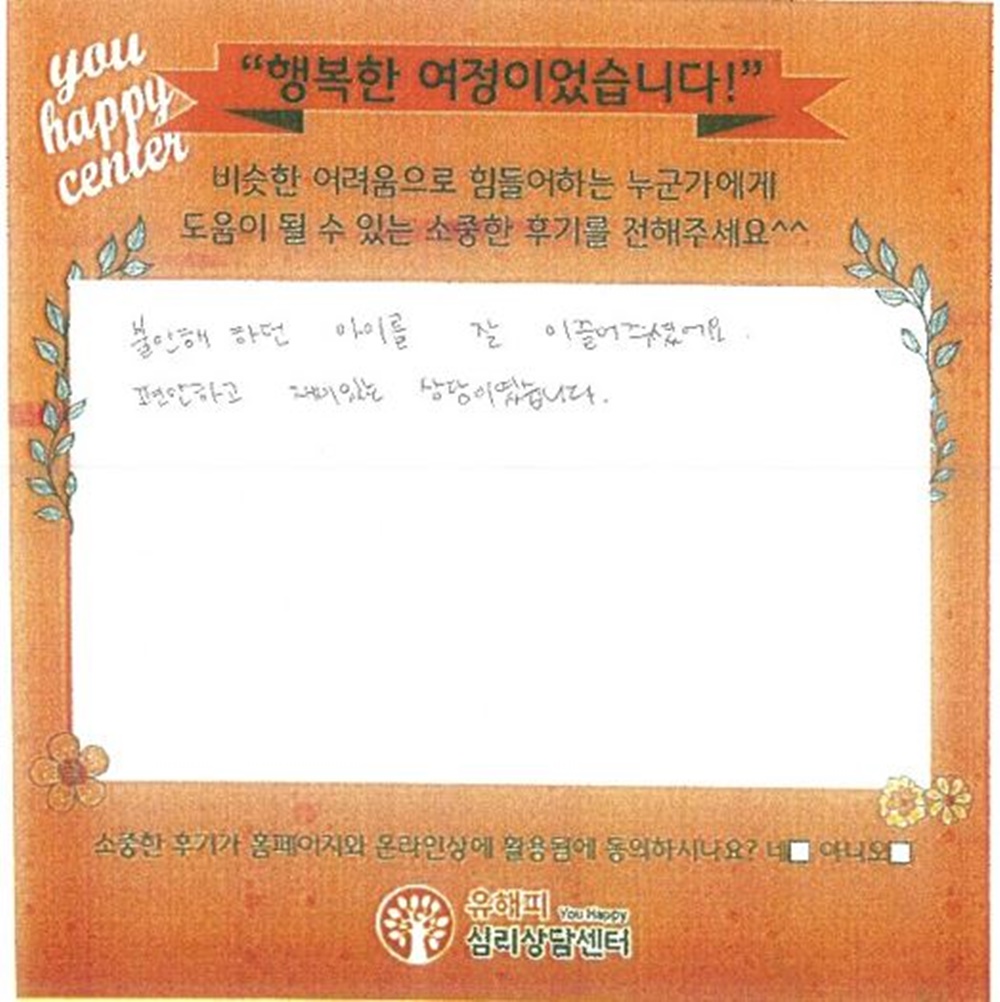 you
happy
center
“행복한 여정이었습니다!”
비슷한 어려움으로 힘들어하는 누군가에게
도움이 될 수 있는 소중한 후기를 전해주세요^^
불안해 하던 아이를 잘 이끌어주셨어요.
편안하고 재미있는 상담이였습니다.
소중한 후기가 홈페이지와 온라인상에 활용됨에 동의하시나요? 네 아니오
유해피 You Happy
심리상담센터